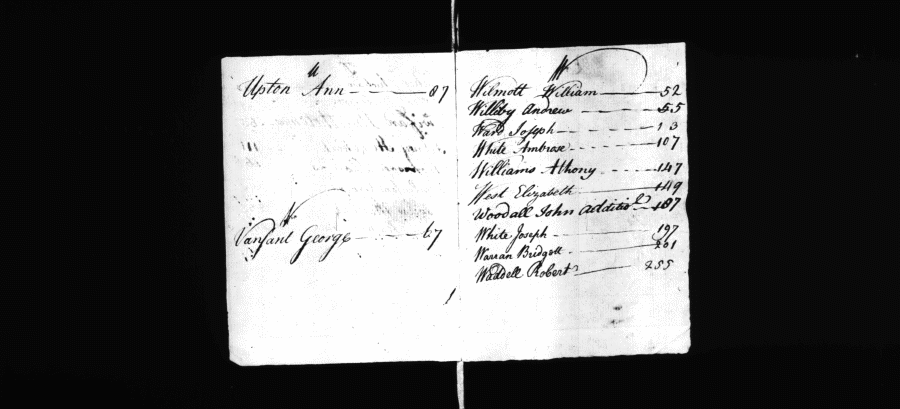 U
Upton Ann 87
V
Vansant George 67
W
Wilmott William 52
Willeby Andrew 55
Ward Joseph
White Ambrose 107
Williams Athony 147
West Elizabeth 149
Woodall John 187
White Joseph 197
Warran Bridgett 201
Waddell Robert 255